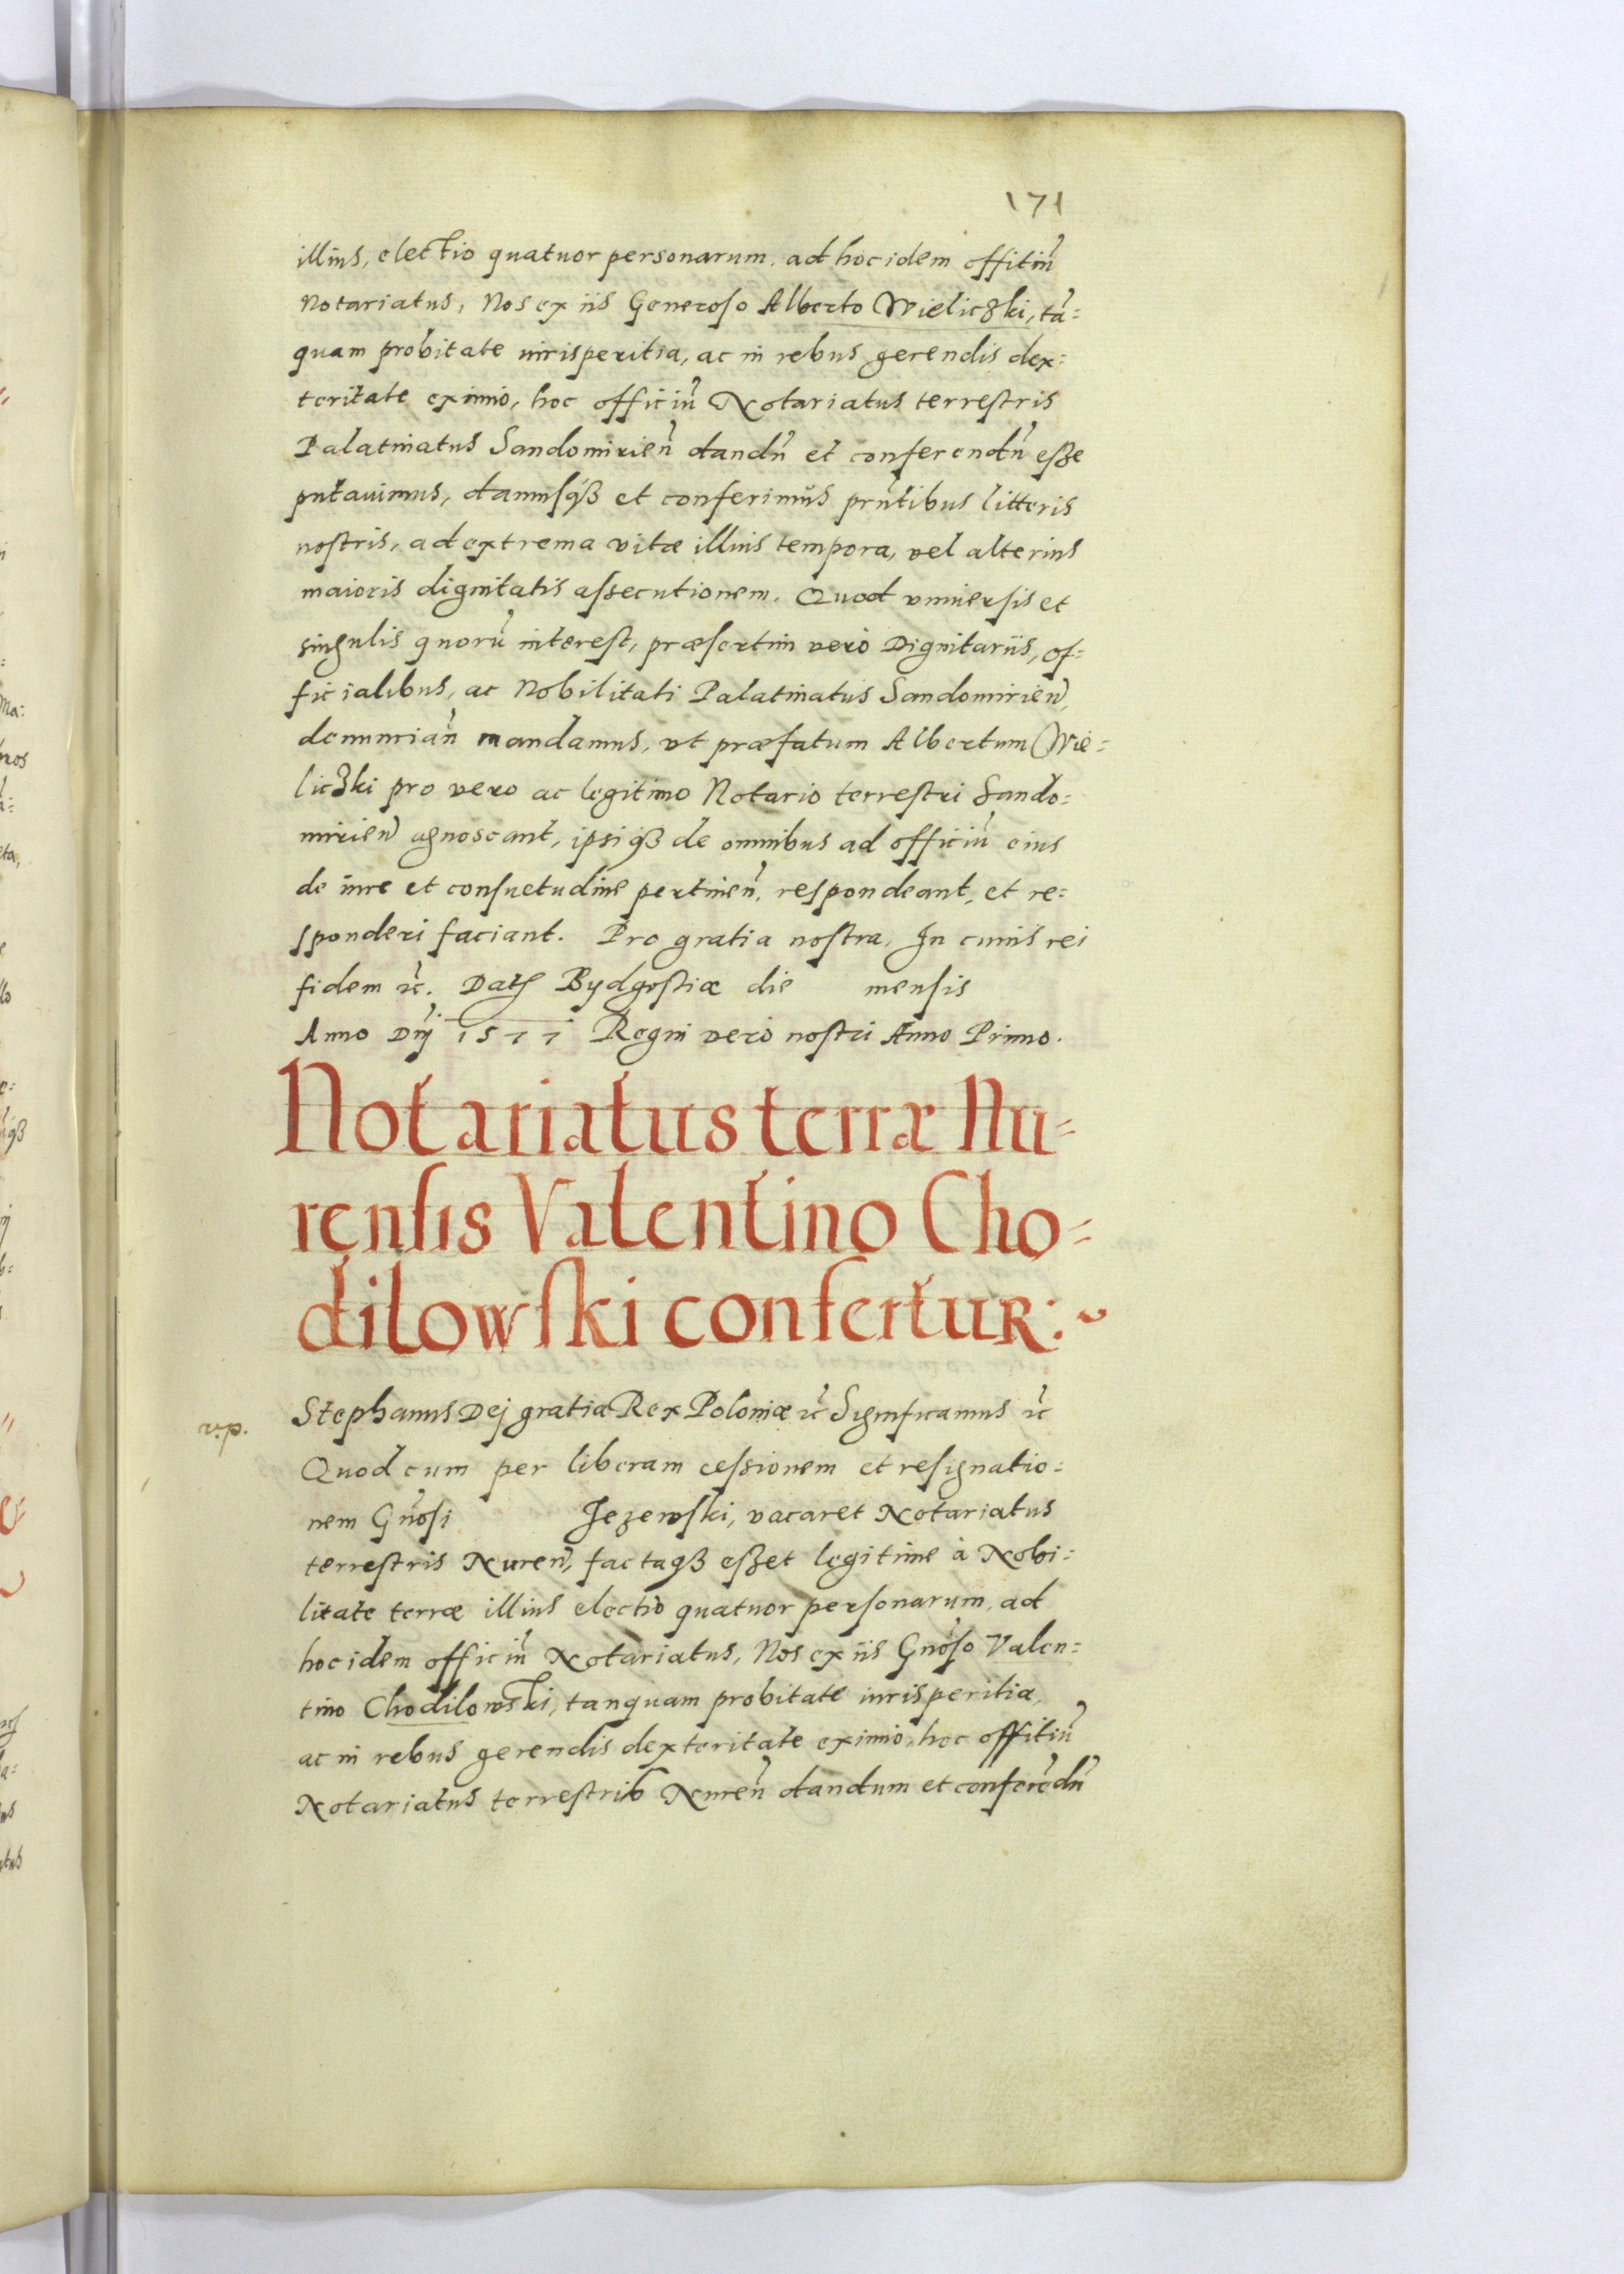 171
illius, electio quatuor personarum, ad hoc idem offitiũ
Notariatus, Nos ex iis Generoso Alberto Wieliczki, tã=
quam probitate iurisperitia, ac in rebus gerendis dex=
teritate eximio, hoc officiũ Notariatus terrestris
Palatinatus Sandomirieñ dandũ et conferendũ esse
putauimus, damusq́ʒ et conferimus prñtibus litteris
nostris, ad extrema vitæ illius tempora, vel alterius
maioris dignitatis assecutionem. Quod vniuersis et
singulis quorũ interest, præsertim verò Dignitariis, of=
ficialibus, ac Nobilitati Palatinatus Sandomirieñ,
denunciañ mandamus, vt præfatum Albertum Wie=
liczki pro vero ac legitimo Notario terrestri Sando=
mirieñ agnoscant, ipsiq́ʒ de omnibus ad officiũ eius
de iure et consuetudine pertineñ, respondeant, et re=
sponderi faciant. Pro gratia nostra, In cuius rei
fidem ꝛc̃. Datꝭ Bydgostiæ die mensis
Anno Dñj 1577 Regni verò nostri Anno Primo.
Notariatus terræ Nu=
rensis Valentino Cho=
dilowski confertur:~
v.p.
Stephanus Dej gratia Rex Poloniæ ꝛc̃ Significamus ꝛc̃
Quod cum per liberam cessionem et resignatio=
nem Gñosi Jezewski, vacaret Notariatus
terrestris Nureñ, factaq́ʒ esset legitime à Nobi=
litate terræ illius electio quatuor personarum, ad
hoc idem officiũ Notariatus, Nos ex iis Gñoso Valen=
tino Chodilowski, tanquam probitate iurisperitia,
ac in rebus gerendis dexteritate eximio, hoc offitiũ
Notariatus terrestris Nureñ dandum et conferẽdũ